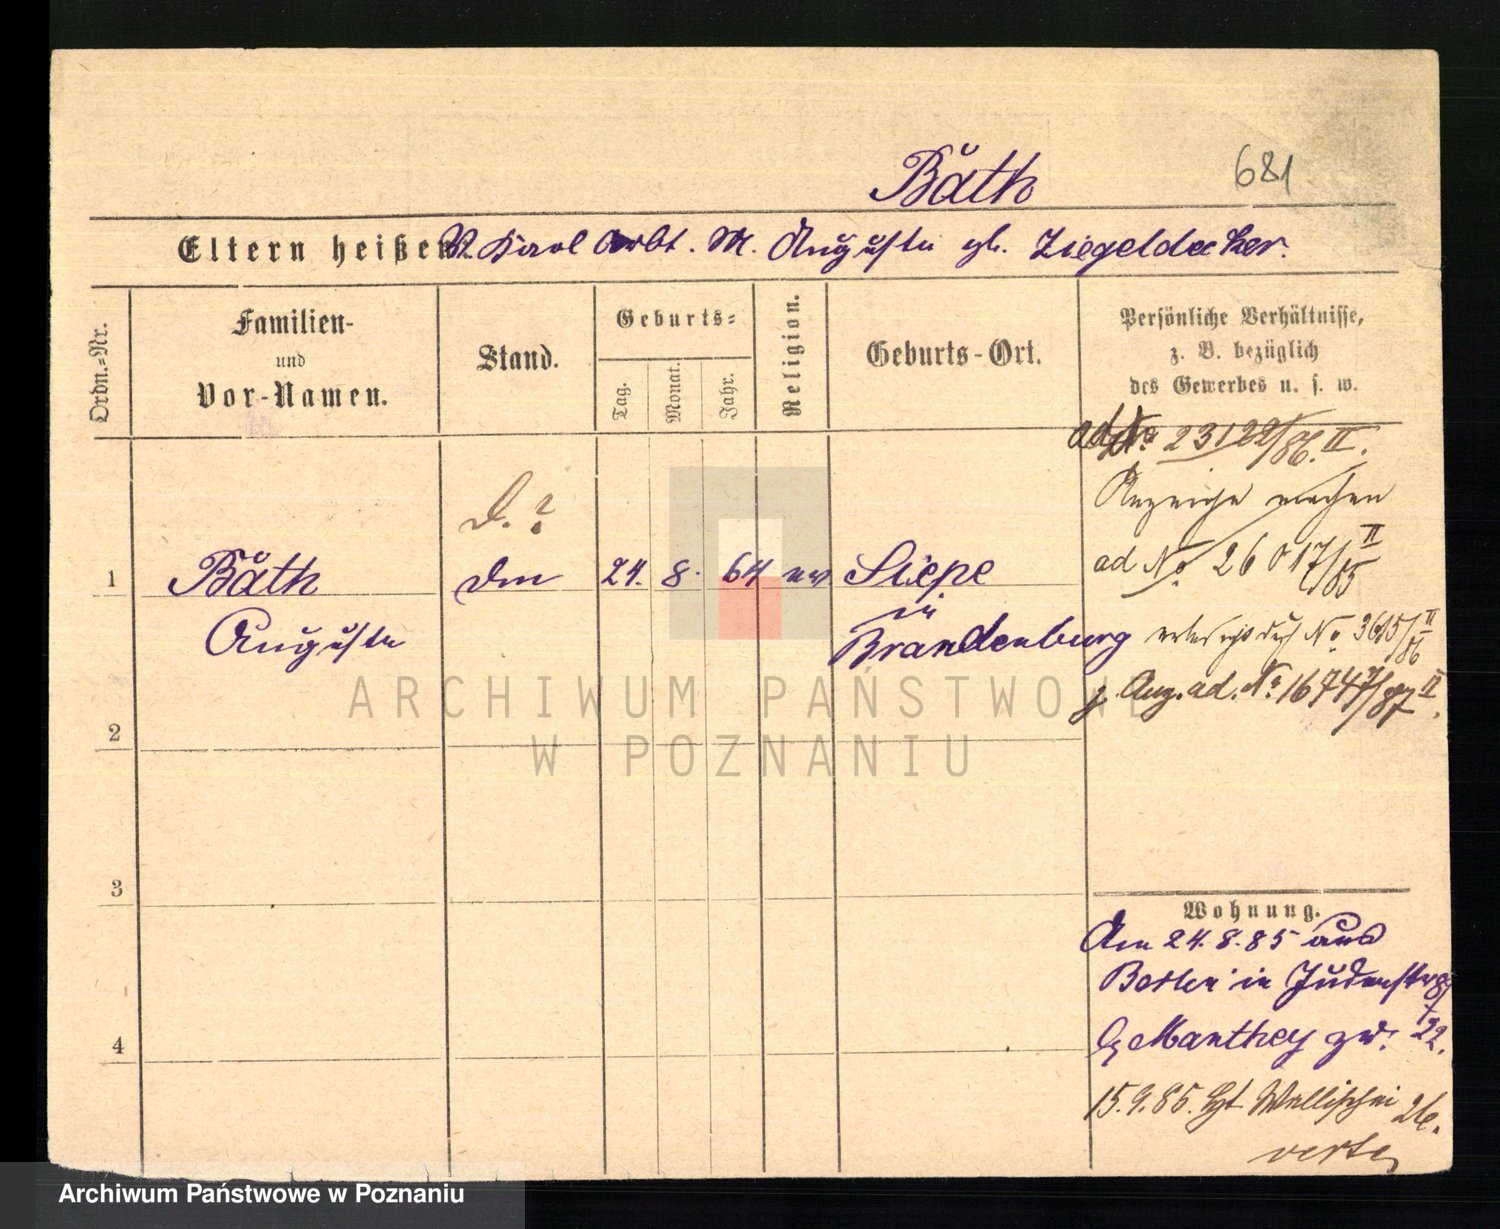 Bäth
681
Eltern heißen: V. Karl Arbt. M. Auguste gb. Ziegeldecker.
Ordn.-Nr.
Familien-
und
Vor-Namen.
Stand.
Geburts-
Tag.
Monat.
Jahr.
Religion.
Geburts-Ort.
Persönliche Verhältnisse,
z. B. bezüglich
des Gewerbes u. s. w.
ad No 23122/86. II.
Anzeige machen
ad No 26017/85 II
D. ?
1 Bäth
Auguste
24. 8. 64 ev
Liepe
in
Brandenburg
No 3615/86 II
Anz. ad. No 16747/87 II.
2
3
4
Wohnung.
Am 24.8.85 aus
Berlin in Judenstr
b Manthey zu.
15.9.85. Wallischei 26.
verte
ARCHIWUM PAŃSTWOWE
W POZNANIU
Archiwum Państwowe w Poznaniu